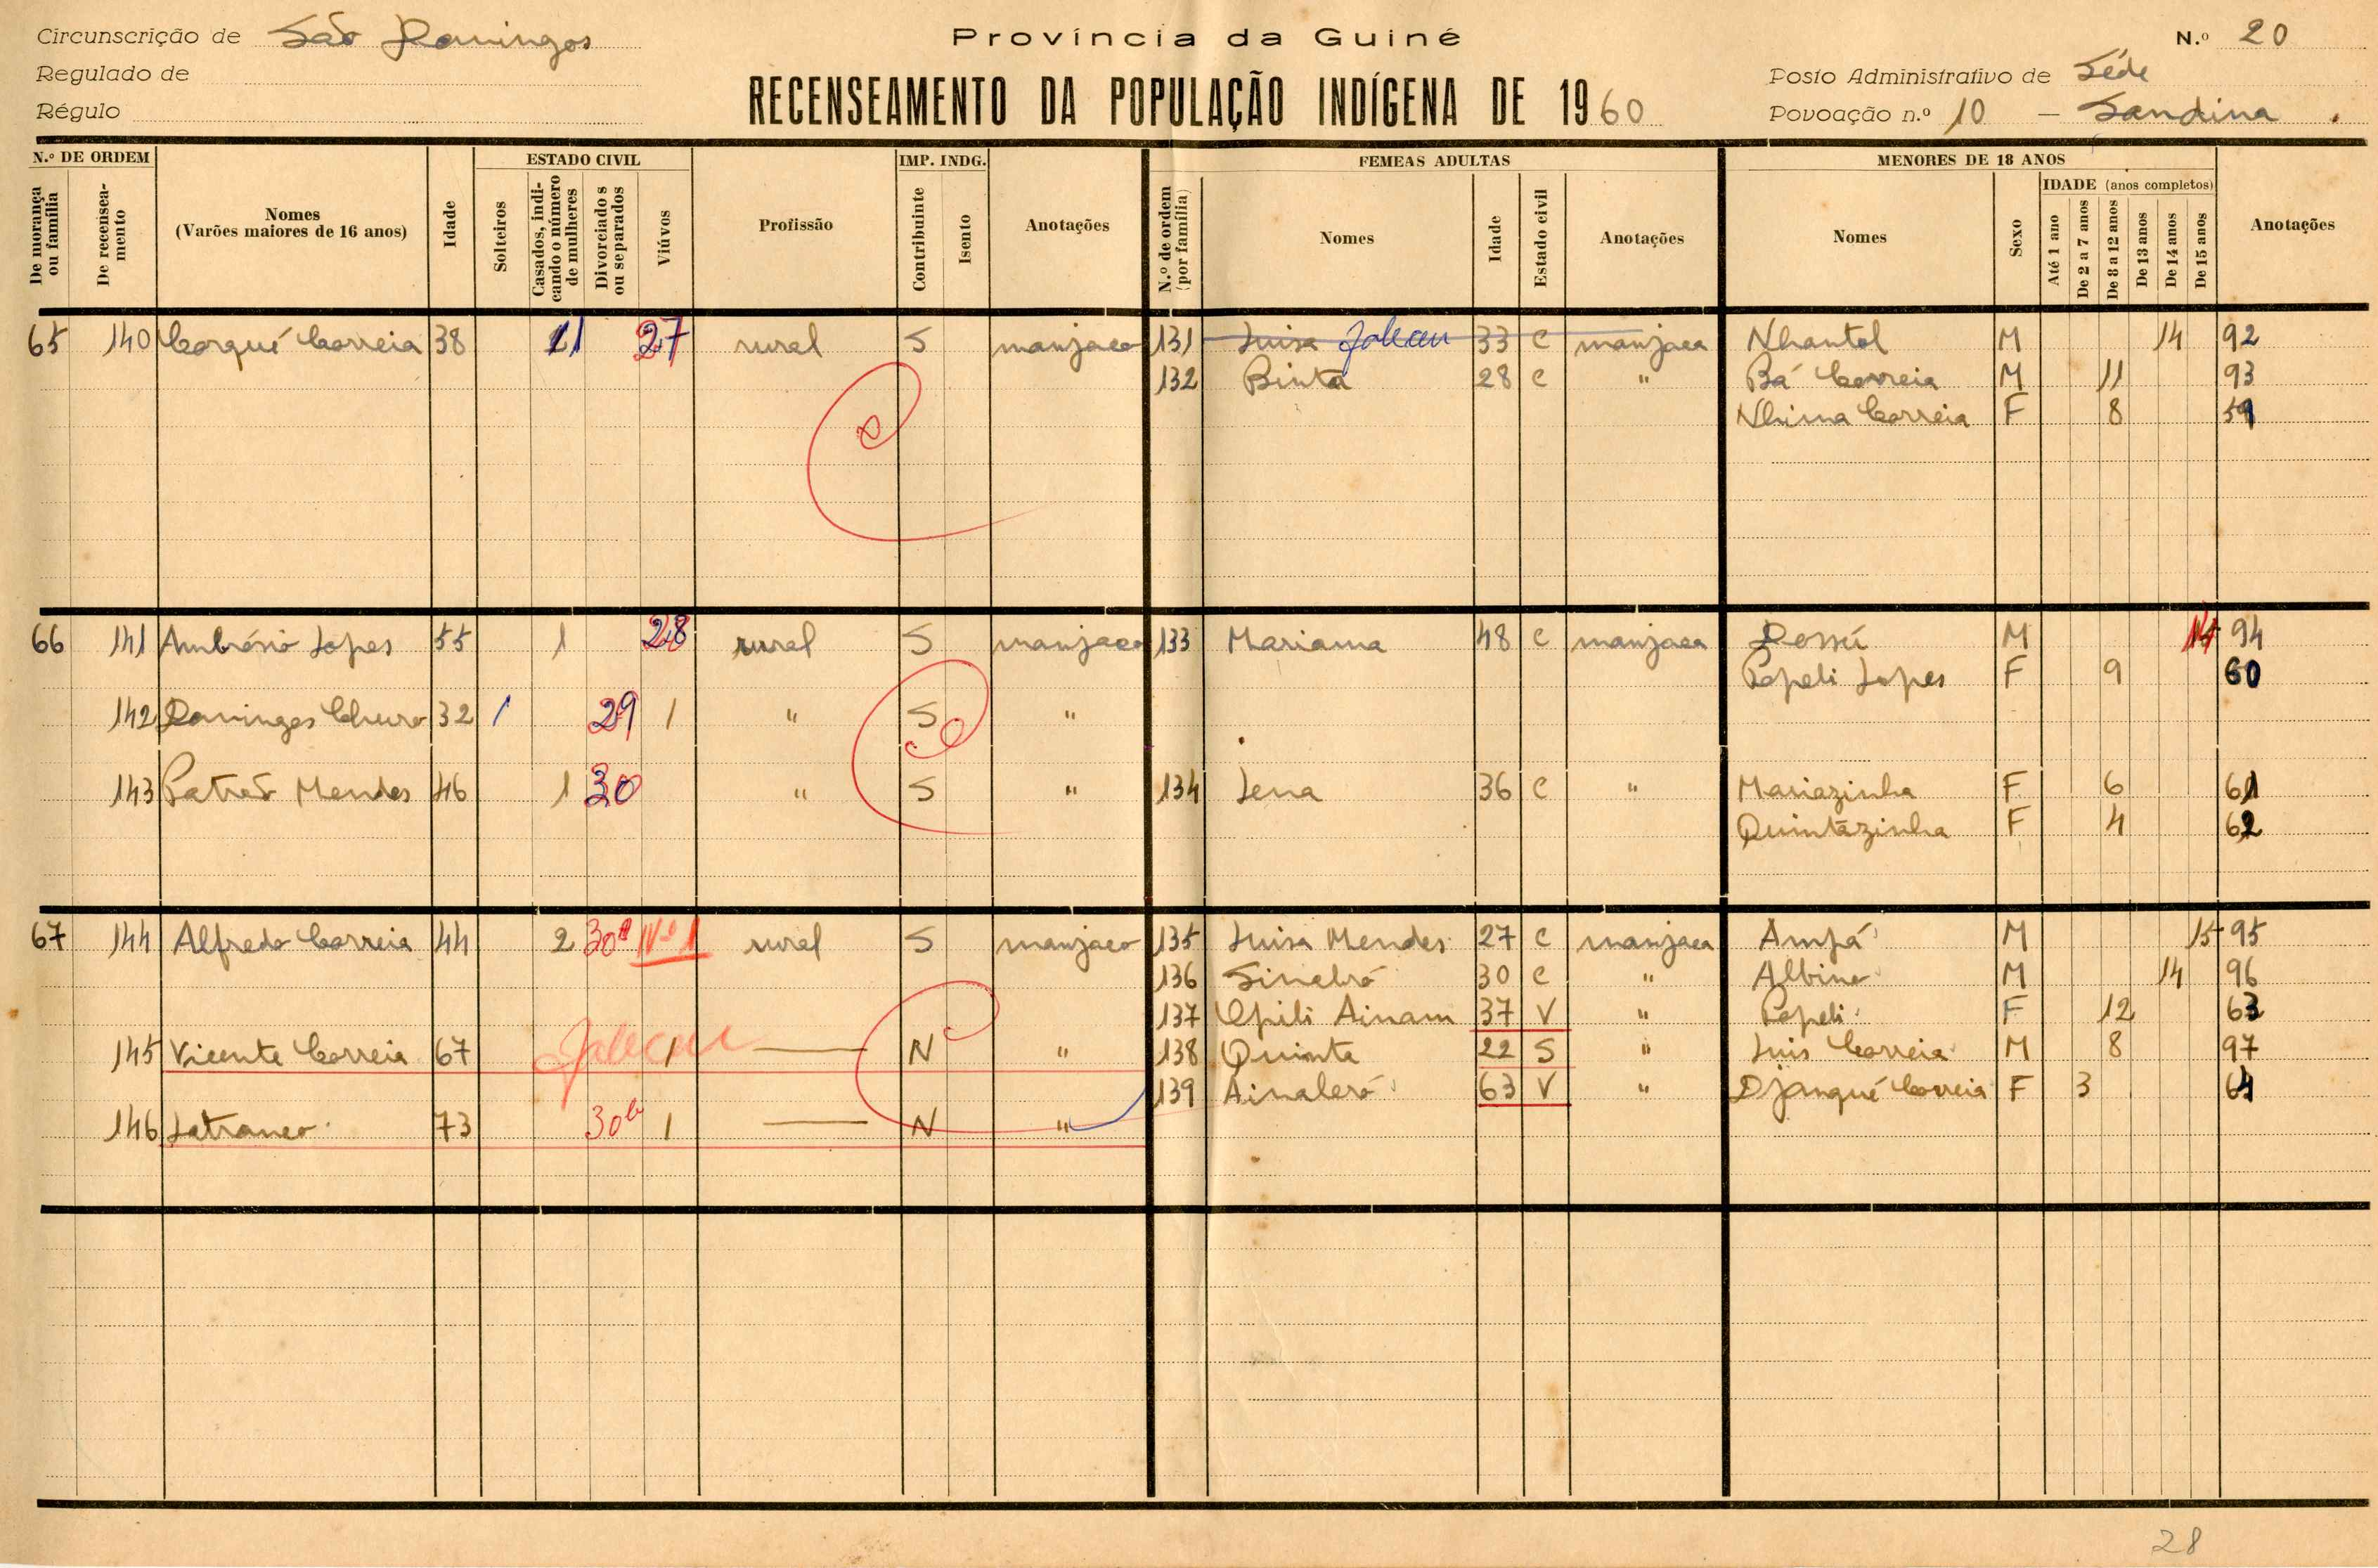 Circunscrição de São Domingos
Regulado de
Régulo
Província da Guiné
RECENSEAMENTO DA POPULAÇÃO INDÍGENA DE 1960
N.º 20
Posto Administrativo de Séde
Povoação n.º 10 – Sandina .
N.º DE ORDEM
De morança ou família
De recenseamento
Nomes
(Varões maiores de 16 anos)
Idade
ESTADO CIVIL
Solteiros
Casados, indicando o número de mulheres
Divorciados ou separados
Viúvos
Profissão
IMP. INDG.
Contribuinte
Isento
Anotações
FEMEAS ADULTAS
N.º de ordem (por família)
Nomes
Idade
Estado civil
Anotações
MENORES DE 18 ANOS
Nomes
Sexo
IDADE (anos completos)
Até 1 ano
De 2 a 7 anos
De 8 a 12 anos
De 13 anos
De 14 anos
De 15 anos
Anotações
65 140 Corqué Correia 38 27 rural S manjaco 131 Luisa faleceu 33 C manjaca Nhantol M 14 92
132 Binta 28 C " Bá Correia M 11 93
Nhima Correia F 8 59
66 141 Ambrósio Lopes 55 1 28 rural S manjaco 133 Mariama 48 C manjaca M 14 94
Pepeli Lopes F 9 60
142 Domingos 32 1 29 1 " S "
143 Patrão Mendes 46 1 30 " S " 134 Lena 36 C " Mariazinha F 6 61
Quintazinha F 4 62
67 144 Alfredo Correia 44 2 30a Nº 1 rural S manjaco 135 Luisa Mendes 27 C manjaca Ampá M 15 95
136 30 C " Albino M 14 96
137 Ainam 37 V " Pepeli F 12 63
145 Vicente Correia 67 faleceu 1 — N " 138 Quinta 22 S " Luis Correia M 8 97
139 63 V " Djanqué Correia F 3 64
146 73 30b 1 — N "
28